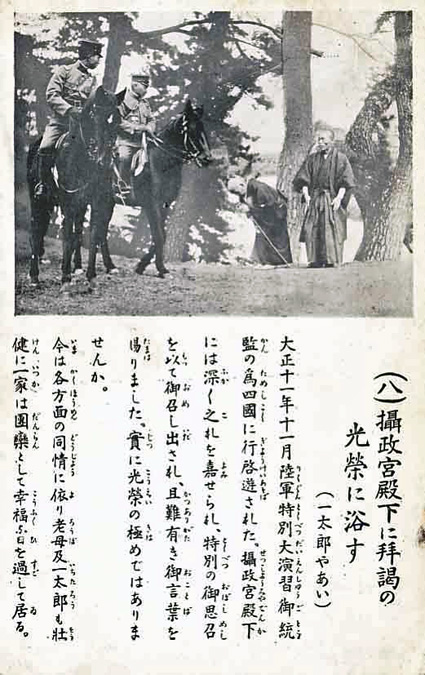 (八)攝政宮殿下に拜謁の
光榮に浴す
(一太郎やあい)
大正十一年十一月陸軍特別大演習御統
監の爲四國に行啓遊された。攝政宮殿下
には深く之れを嘉せられ、特別の御思召
を以て御召し出され、且難有き御言葉を
賜りました。實に光榮の極めではありま
せんか。
今は各方面の同情に依り老母及一太郎も壯
健に一家は團欒として幸福な日を過して居る。